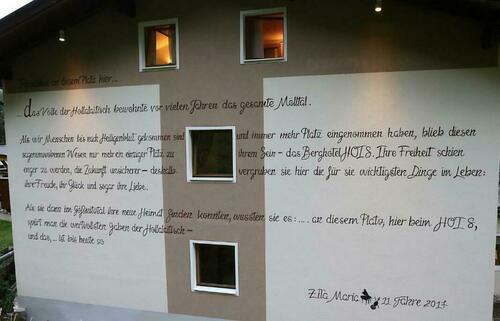 an diesem Platz hier...
...das Volk der Hollalaitisch bewohnte vor vielen Jahren das gesamte Mölltal.
Als wir Menschen bis nach Heiligenblut gekommen sind und immer mehr Platz eingenommen haben, blieb diesen
sagenumwobenen Wesen nur mehr ein einziger Platz zu ihrem Sein - das Berghotel HOIS. Ihre Freiheit schien
enger zu werden, die Zukunft unsicherer - deshalb vergruben sie hier die für sie wichtigsten Dinge im Leben:
ihre Freude, ihr Glück und sogar ihre Liebe.
Als sie dann im Gößnitztal ihre neue Heimat finden konnten, wussten sie es: .... an diesem Platz, hier beim HOIS,
spürt man die wertvollsten Gaben der Hollalaitisch -
und das, ... ist bis heute so
Zita Maria 21 Jahre 2017